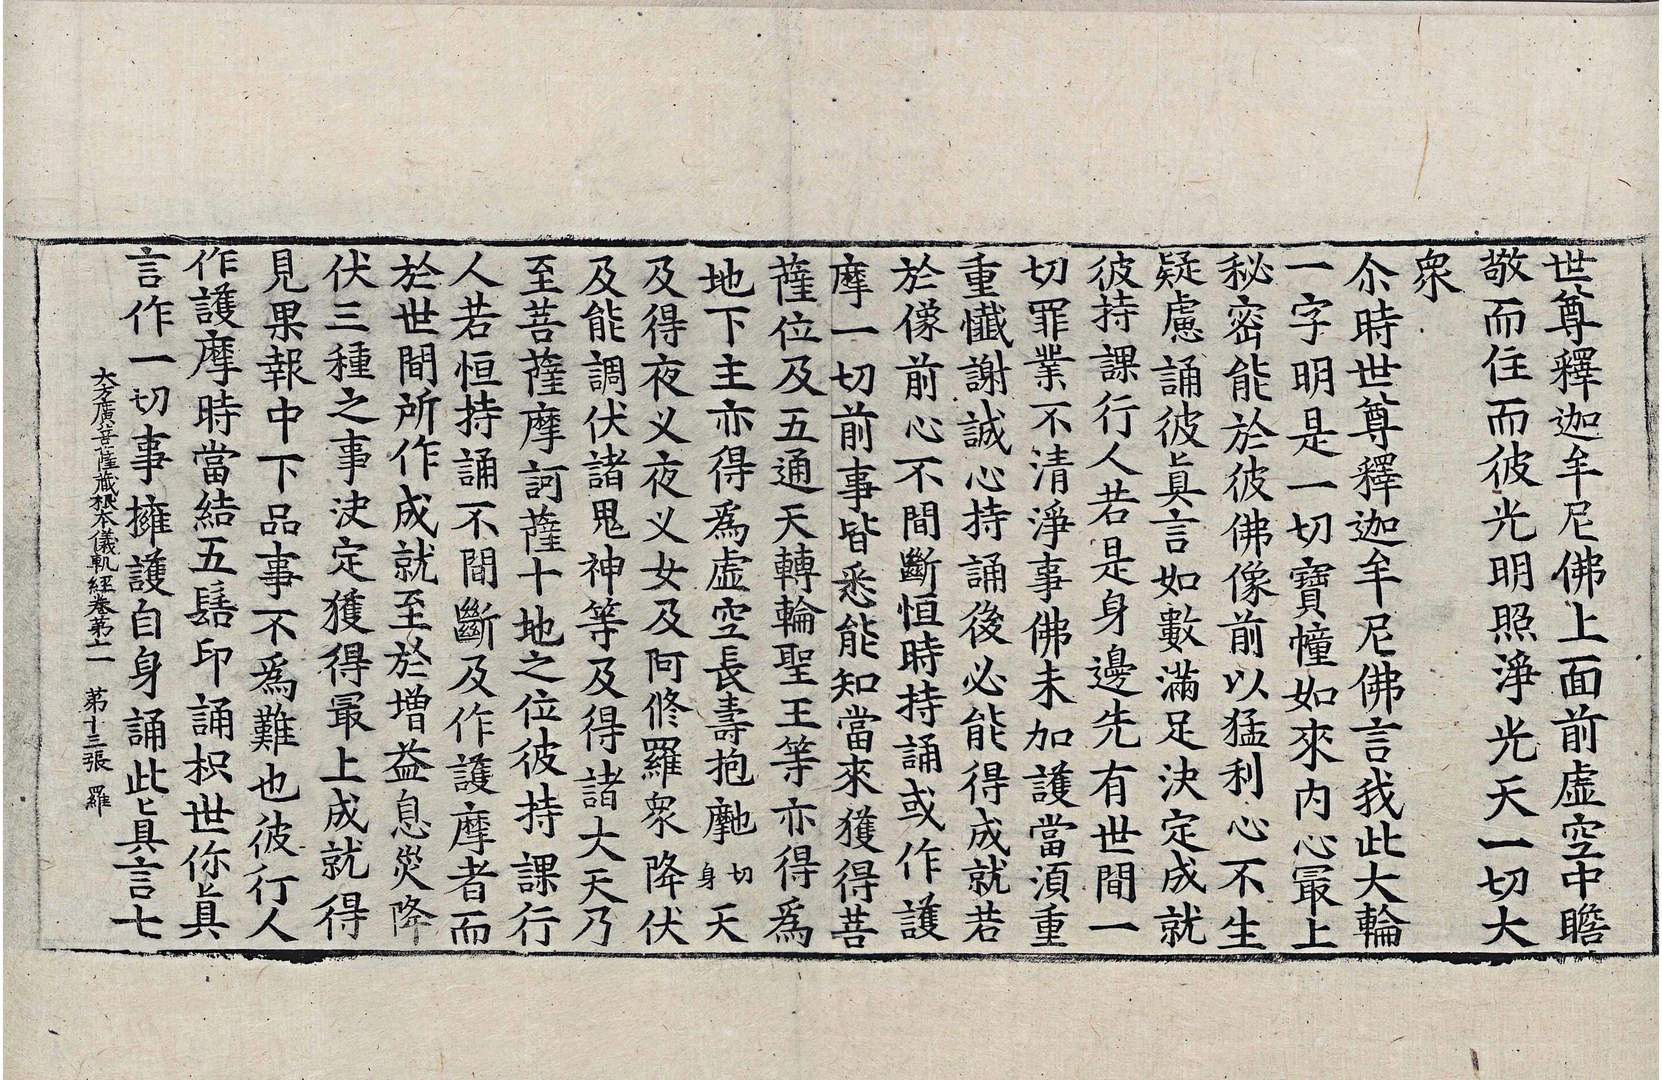 世尊釋迦牟尼佛上面前虛空中瞻
敬而住而彼光明照淨光天一切大
衆
尒時世尊釋迦牟尼佛言我此大輪
一字明是一切寶幢如來内心冣上
秘密能於彼佛像前以猛利心不生
疑慮誦彼真言如數滿足決定成就
彼持課行人若是身邊先有世間一
切罪業不清淨事佛未加護當湏重
重懺謝誠心持誦後必能得成就若
於像前心不間斷恒時持誦或作護
摩一切前事皆悉能知當來獲得菩
薩位及五通天轉輪聖王等亦得為
地下主亦得為虛空長壽抱𪎮切身天
及得夜义夜义女及阿修羅衆降伏
及能調伏諸鬼神等及得諸大天乃
至菩薩摩訶薩十地之位彼持課行
人若恒持誦不間斷及作護摩者而
於世間所作成就至於增益息災降
伏三種之事決定獲得冣上成就得
見果報中下品事不為難也彼行人
作護摩時當結五髻印誦枳世你真
言作一切事擁護自身誦此真言七
大方廣菩薩藏根本儀軌經卷第十一 第十三張 羅